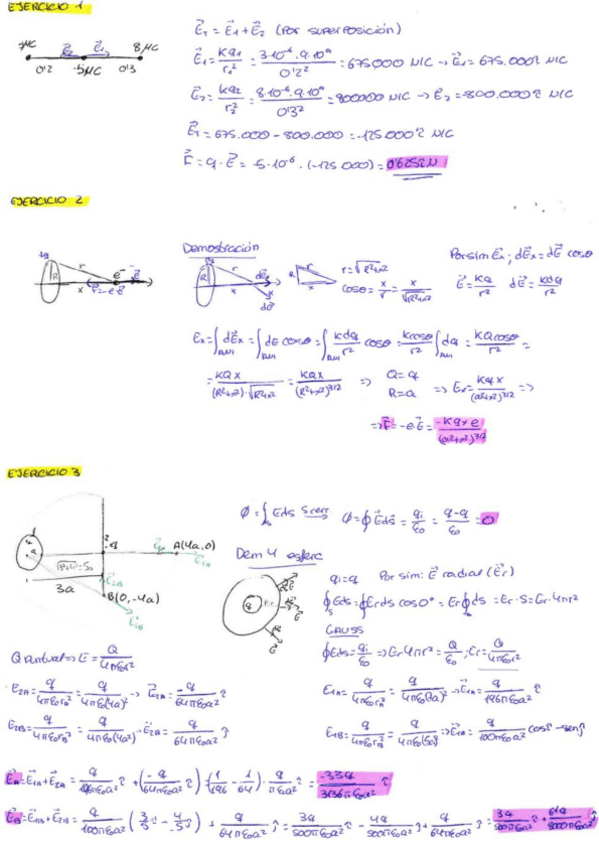 EJERCICIO 1
7μC 8μC
E₂ E₁
0'2 -5μC 0'3
E⃗_T = E⃗₁ + E⃗₂ (Por superposición)
E⃗₁ = kq₁/r₁² = 3·10⁻⁶·9·10⁹/0'2² = 675000 N/C → E⃗₁ = 675.000 î N/C
E⃗₂ = kq₂/r₂² = 8·10⁻⁶·9·10⁹/0'3² = 800000 N/C → E⃗₂ = -800.000 î N/C
E⃗_T = 675.000 - 800.000 = -125.000 î N/C
F⃗ = q·E⃗ = -5·10⁻⁶·(-125.000) = 0'625 î N
EJERCICIO 2
+q R r x e⁻ E⃗ F⃗=-e·E⃗
Demostración
R r x dEx dE⃗
r = √R²+x²
cosθ = x/r = x/√R²+x²
Por sim Ex ; dEx = dE⃗ cosθ
E⃗ = kq/r² dE⃗ = kdq/r²
Ex = ∫dE⃗x = ∫dE cosθ = ∫kdq/r² cosθ = kcosθ/r² ∫dq = kQcosθ/r² =
= kQx/(R²+x²)·√R²+x² = kQx/(R²+x²)^3/2 ⇒ Q=q R=a ⇒ Ex = kqx/(a²+x²)^3/2 ⇒
⇒ F⃗ = -e·E⃗ = -kqxe/(a²+x²)^3/2
EJERCICIO 3
a -q A(4a,0)
3a
B(0,-4a)
E₁B
ϕ = ∫Eds S cerr ϕ = ∮E⃗ds⃗ = qi/ε₀ = q-q/ε₀ = 0
Dem 4 esfera
qi=q Por sim: E⃗ radial (E⃗r)
∮Eds = ∮Erds cos0° = Er∮ds = Er·S = Er·4πr²
GAUSS
∮Eds = qi/ε₀ ⇒ Er4πr² = Q/ε₀ ; Er = Q/4πε₀r²
Q puntual ⇒ E = Q/4πε₀r²
E₂A = q/4πε₀r_A² = q/4πε₀(4a)² → E⃗₂A = -q/64πε₀a² î
E₁A = q/4πε₀r² = q/4πε₀(7a)² → E⃗₁A = q/196πε₀a² î
E₂B = q/4πε₀r_B² = q/4πε₀(4a)² → E⃗₂B = q/64πε₀a² ĵ
E₁B = q/4πε₀r_B² = q/4πε₀(5a)² → E⃗₁B = q/100πε₀a² cosî - senĵ
E⃗A = E⃗₁A + E⃗₂A = q/196πε₀a² î + (-q/64πε₀a² î) = (1/196 - 1/64)· q/πε₀a² î = -33q/3136πε₀a² î
E⃗B = E⃗₁B + E⃗₂B = q/100πε₀a² (3/5 î - 4/5 ĵ) + q/64πε₀a² ĵ = 3q/500πε₀a² î - 4q/500πε₀a² ĵ + q/64πε₀a² ĵ = 3q/500πε₀a² î + 61q/8000πε₀a² ĵ